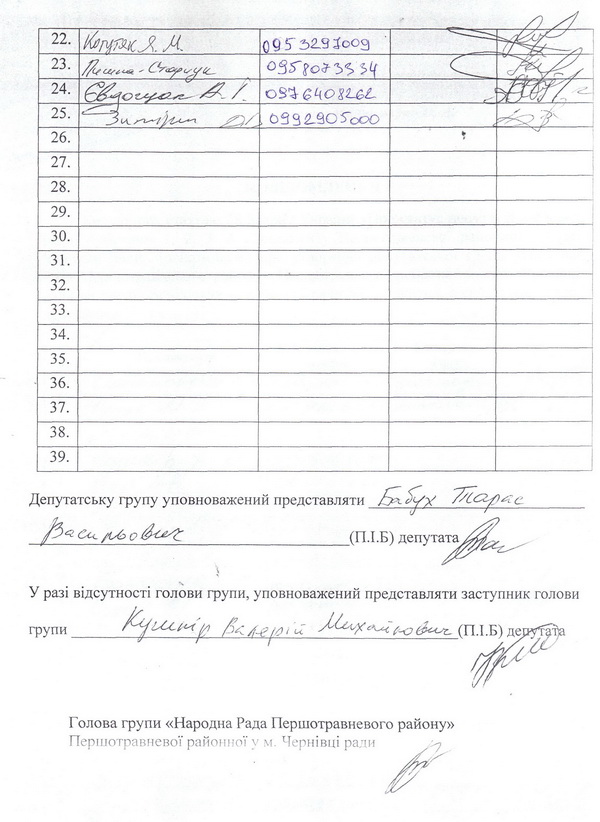 22. Когутяк Я. М. 0953297009
23. 0958073334
24. 0976408262
25. 0992905000
26.
27.
28.
29.
30.
31.
32.
33.
34.
35.
36.
37.
38.
39.
Депутатську групу уповноважений представляти Бабух Тарас
Васильович (П.І.Б) депутата
У разі відсутності голови групи, уповноважений представляти заступник голови
групи Кушнір Валерій Михайлович (П.І.Б) депутата
Голова групи «Народна Рада Першотравневого району»
Першотравневої районної у м. Чернівці ради